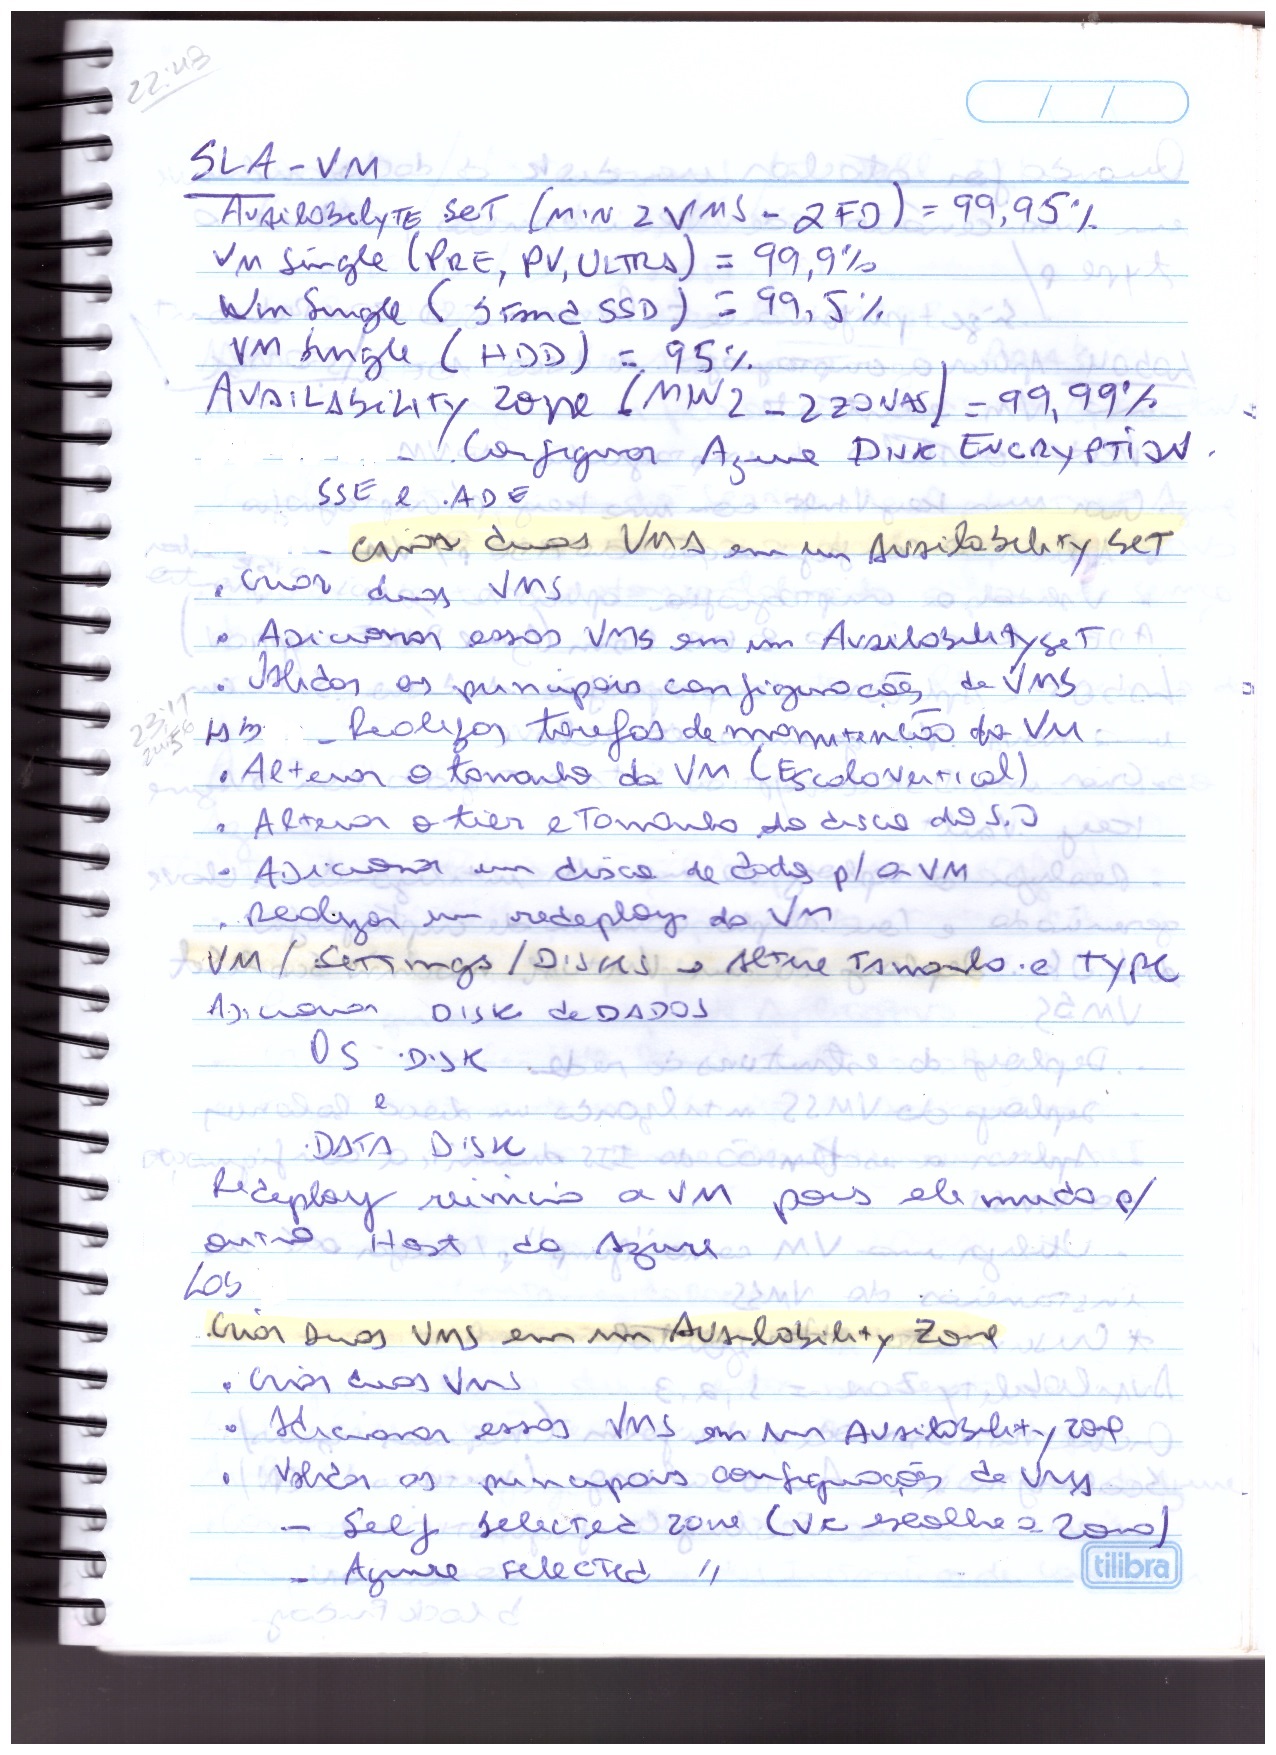 22:43
SLA - VM
Availabelyte set (MIN 2 VMS - 2 FD) = 99,95%
VM Single (PRE, PV, ULTRA) = 99,9%
VM Single ( Stand SSD ) = 99,5%
VM Single ( HDD ) = 95%
AVAILABILITY Zone (MIN 2 - 2 ZONAS) = 99,99%
- Configurar Azure DISK ENCRYPTION.
SSE e ADE
- criar duas VMs em um Availability SET
• Criar duas VMS
• Adicionar essas VMS em um Availability set
• Validar as principais configurações de VMS
23:17
LAB - Realizar tarefas de manutenção da VM
• Alterar o tamanho da VM (Escala vertical)
• Alterar o tier e Tamanho do disco do S.O
• Adicionar um disco de dados p/ a VM
• Realizar um redeploy da VM
VM / Settings / DISKS → Altere Tamanho e TYPE
Adicionar DISK de DADOS
OS DISK
e
DATA DISK
Redeploy reinicia a VM pois ele muda p/
outro Host do Azure
Lab
Criar duas VMS em um Availability Zone
• Criar duas VMs
• Adicionar essas VMS em um Availability zone
• Validar as principais configurações de VMs
- Self selected zone (vc escolhe a zona)
- Azure selected "
tilibra